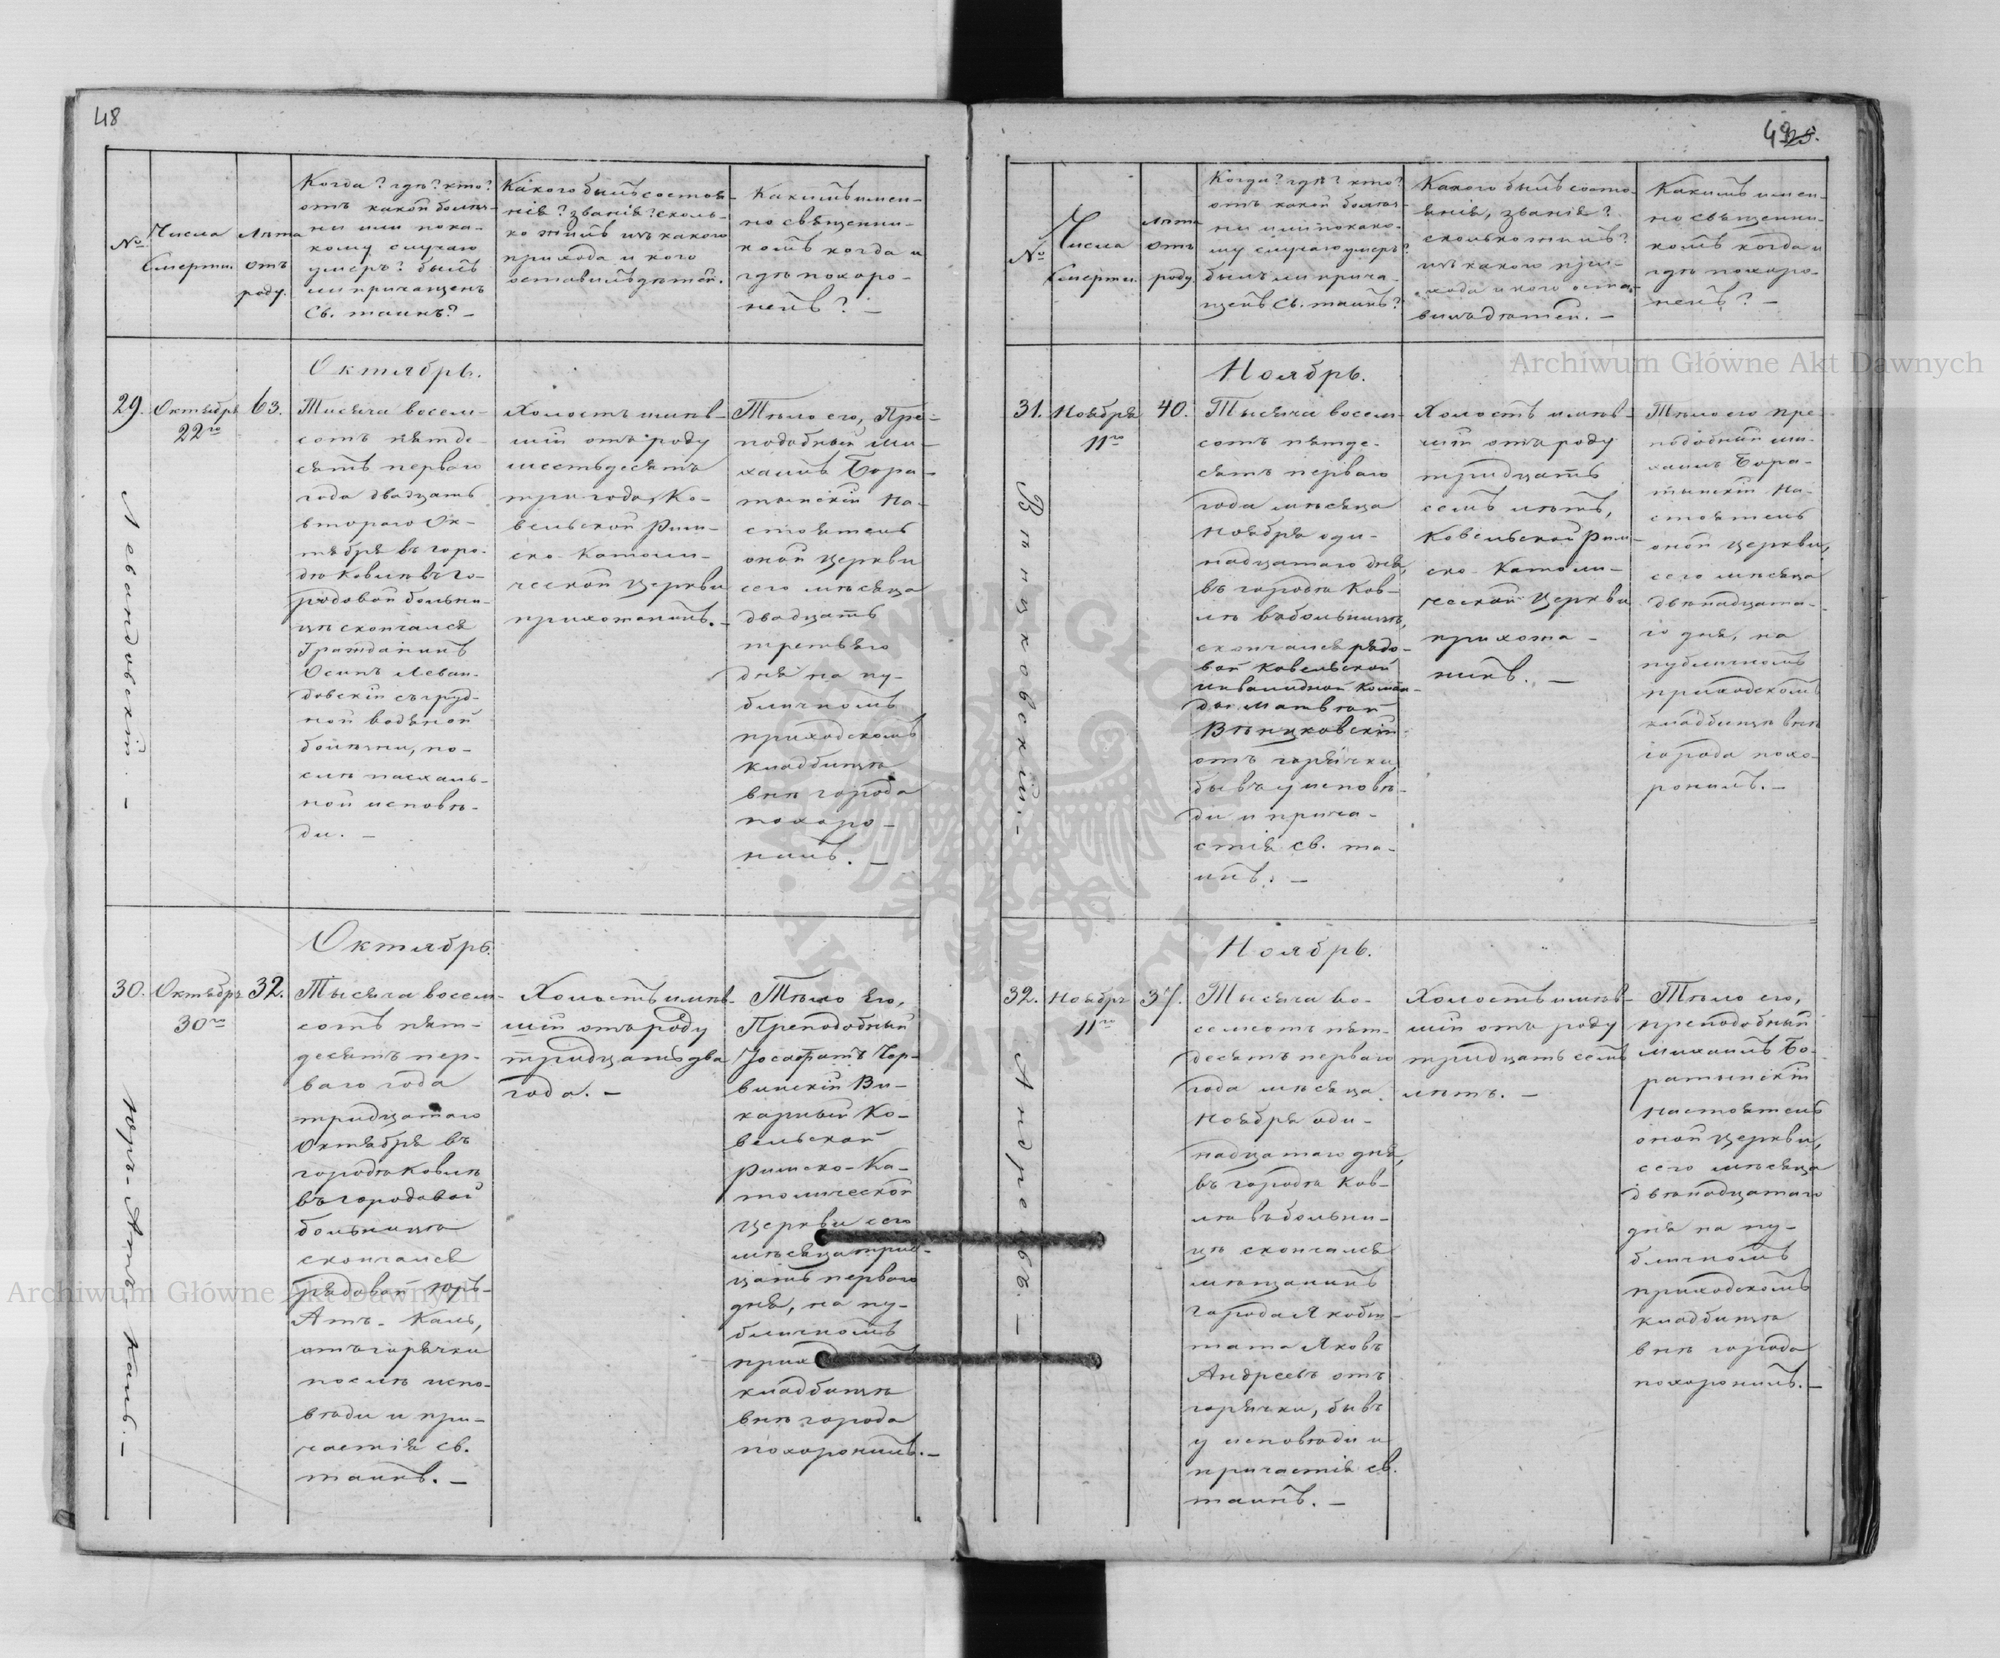 48
№
Числа
Смерти.
Лѣта
отъ
роду.
Когда? гдѣ? кто?
отъ какой болѣз-
ни или пока-
кому случаю
умеръ? былъ
ли причащенъ
Св. таинъ? —
Какого былъ состоя-
нія? званія? сколь-
ко жилъ изъ какого
прихода и кого
оставилъ дѣтей.
Какимъ имен-
но священни-
комъ когда и
гдѣ похоро-
ненъ? —
29.
Левандовскій. —
Октября
22го
63.
Октябрь.
Тысяча восем-
сотъ пятде-
сятъ перваго
года двадцать
втораго Ок-
тября въ горо-
дѣ Ковлѣ въ го-
родовой больни-
цѣ скончался
Гражданинъ
Осипъ Леван-
довскій съ груд-
ной водяной
болѣзни, по-
слѣ пасхаль-
ной исповѣ-
ди. —
Холостъ имѣв-
шій отъ роду
шестьдесятъ
три года, Ко-
вельской Рим-
ско-Католи-
ческой Церкви
прихожанинъ. —
Тѣло его, Пре-
подобный Ми-
хаилъ Бора-
тынскій На-
стоятель
оной Церкви
сего мѣсяца
двадцать
третьяго
дня на пу-
бличномъ
приходскомъ
кладбищѣ
внѣ города
похоро-
нилъ. —
30.
Юръ-Атъ-Каль. —
Октября
30го
32.
Октябрь.
Тысяча восем-
сотъ пят-
десятъ пер-
ваго года
тридцатаго
Октября въ
городѣ Ковлѣ
въ городовой
больницѣ
скончался
рядовой Юръ-
Атъ-Каль,
отъ горячки
послѣ испо-
вѣди и при-
частія св.
таинъ. —
Холостъ имѣв-
шій отъ роду
тридцать два
года. —
Тѣло его,
Преподобный
Іосафатъ Чер-
винскій Ви-
карный Ко-
вельской
Римско-Ка-
толической
Церкви сего
мѣсяца трид-
цать перваго
дня, на пу-
бличномъ
кладбищѣ
внѣ города
похоронилъ. —
49
25.
№
Числа
Смерти.
Лѣта
отъ
роду.
Когда? гдѣ? кто?
отъ какой болѣз-
ни или по како-
му случаю умеръ?
былъ ли прича-
щенъ Св. таинъ?
Какого былъ состо-
янія, званія?
сколько жилъ?
изъ какого при-
хода и кого оста-
вилъ дѣтей. —
Какимъ имен-
но священни-
комъ когда и
гдѣ похоро-
ненъ? —
31.
Вѣнцковскій. —
Ноября
11го
40.
Ноябрь.
Тысяча восем-
сотъ пятде-
сятъ перваго
года мѣсяца
Ноября оди-
надцатаго дня,
въ городѣ Ков-
лѣ въ больницѣ,
скончался рядо-
вой Ковельской
инвалидной коман-
ды Матвѣй
Вѣнцковскій
отъ горячки,
бывъ у исповѣ-
ди и прича-
стія св. та-
инъ. —
Холостъ имѣв-
шій отъ роду
тридцать
семь лѣтъ,
Ковельской Рим-
ско-Католи-
ческой Церкви
прихожа-
нинъ. —
Тѣло его пре-
подобный Ми-
хаилъ Бора-
тынскій На-
стоятель
оной Церкви,
сего мѣсяца
двѣнадцата-
го дня, на
публичномъ
приходскомъ
кладбищѣ внѣ
города похо-
ронилъ. —
32.
Андреевъ. —
Ноября
11го
37.
Ноябрь.
Тысяча во-
семсотъ пят-
десятъ перваго
года мѣсяца
Ноября оди-
надцатаго дня,
въ городѣ Ков-
лѣ въ больни-
цѣ скончался
мѣщанинъ
города Якоб-
тата Яковъ
Андреевъ отъ
горячки, бывъ
у исповѣди и
причастія св.
таинъ. —
Холостъ имѣв-
шій отъ роду
тридцать семь
лѣтъ. —
Тѣло его,
преподобный
Михаилъ Бо-
ратынскій
Настоятель
оной Церкви,
сего мѣсяца
двѣнадцатаго
дня на пу-
бличномъ
приходскомъ
кладбищѣ
внѣ города
похоронилъ. —
Archiwum Główne Akt Dawnych
Archiwum Główne Akt Dawnych
ARCHIWUM GŁÓWNE AKT DAWNYCH